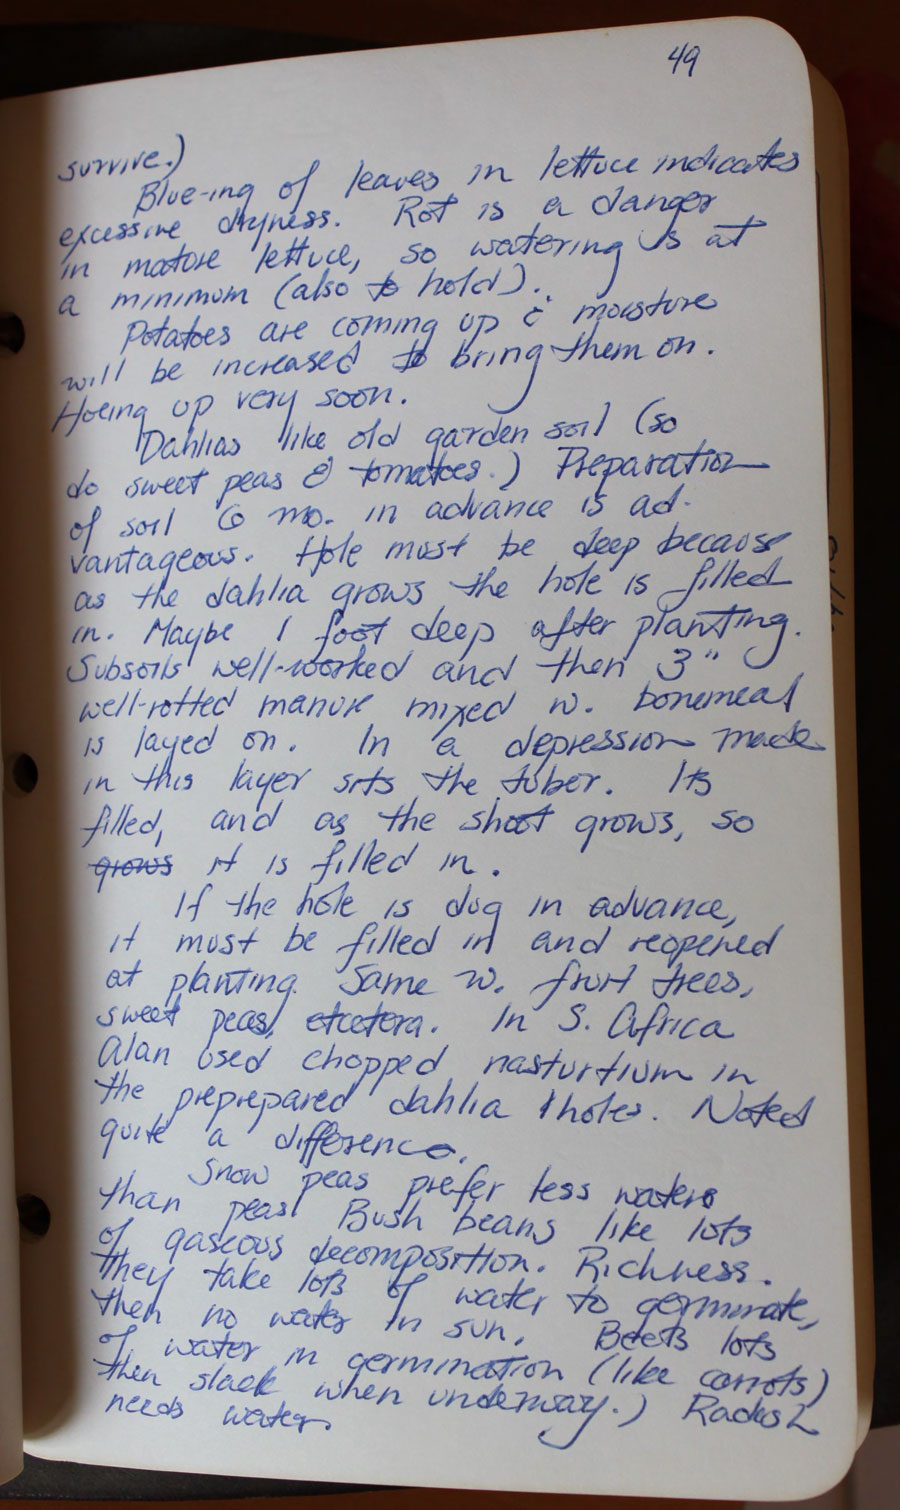 49
survive.)
Blue-ing of leaves in lettuce indicates
excessive dryness. Rot is a danger
in mature lettuce, so watering is at
a minimum (also to hold).
Potatoes are coming up c̄ moisture
will be increased to bring them on.
Hoeing up very soon.
Dahlias like old garden soil (so
do sweet peas & tomatoes.) Preparation
of soil 6 mo. in advance is ad-
vantageous. Hole must be deep because
as the dahlia grows the hole is filled
in. Maybe 1 foot deep after planting.
Subsoils well-worked and then 3"
well-rotted manure mixed w. bonemeal
is layed on. In a depression made
in this layer sits the tuber. Its
filled, and as the shoot grows, so
grows it is filled in.
If the hole is dug in advance,
it must be filled in and reopened
at planting. Same w. fruit trees,
sweet peas, etcetera. In S. Africa
Alan used chopped nasturtium in
the preprepared dahlia holes. Noted
quite a difference.
Snow peas prefer less water
than peas. Bush beans like lots
of gaseous decomposition. Richness.
They take lots of water to germinate,
then no water in sun. Beets lots
of water in germination (like carrots)
then slack when underway.)
needs water.